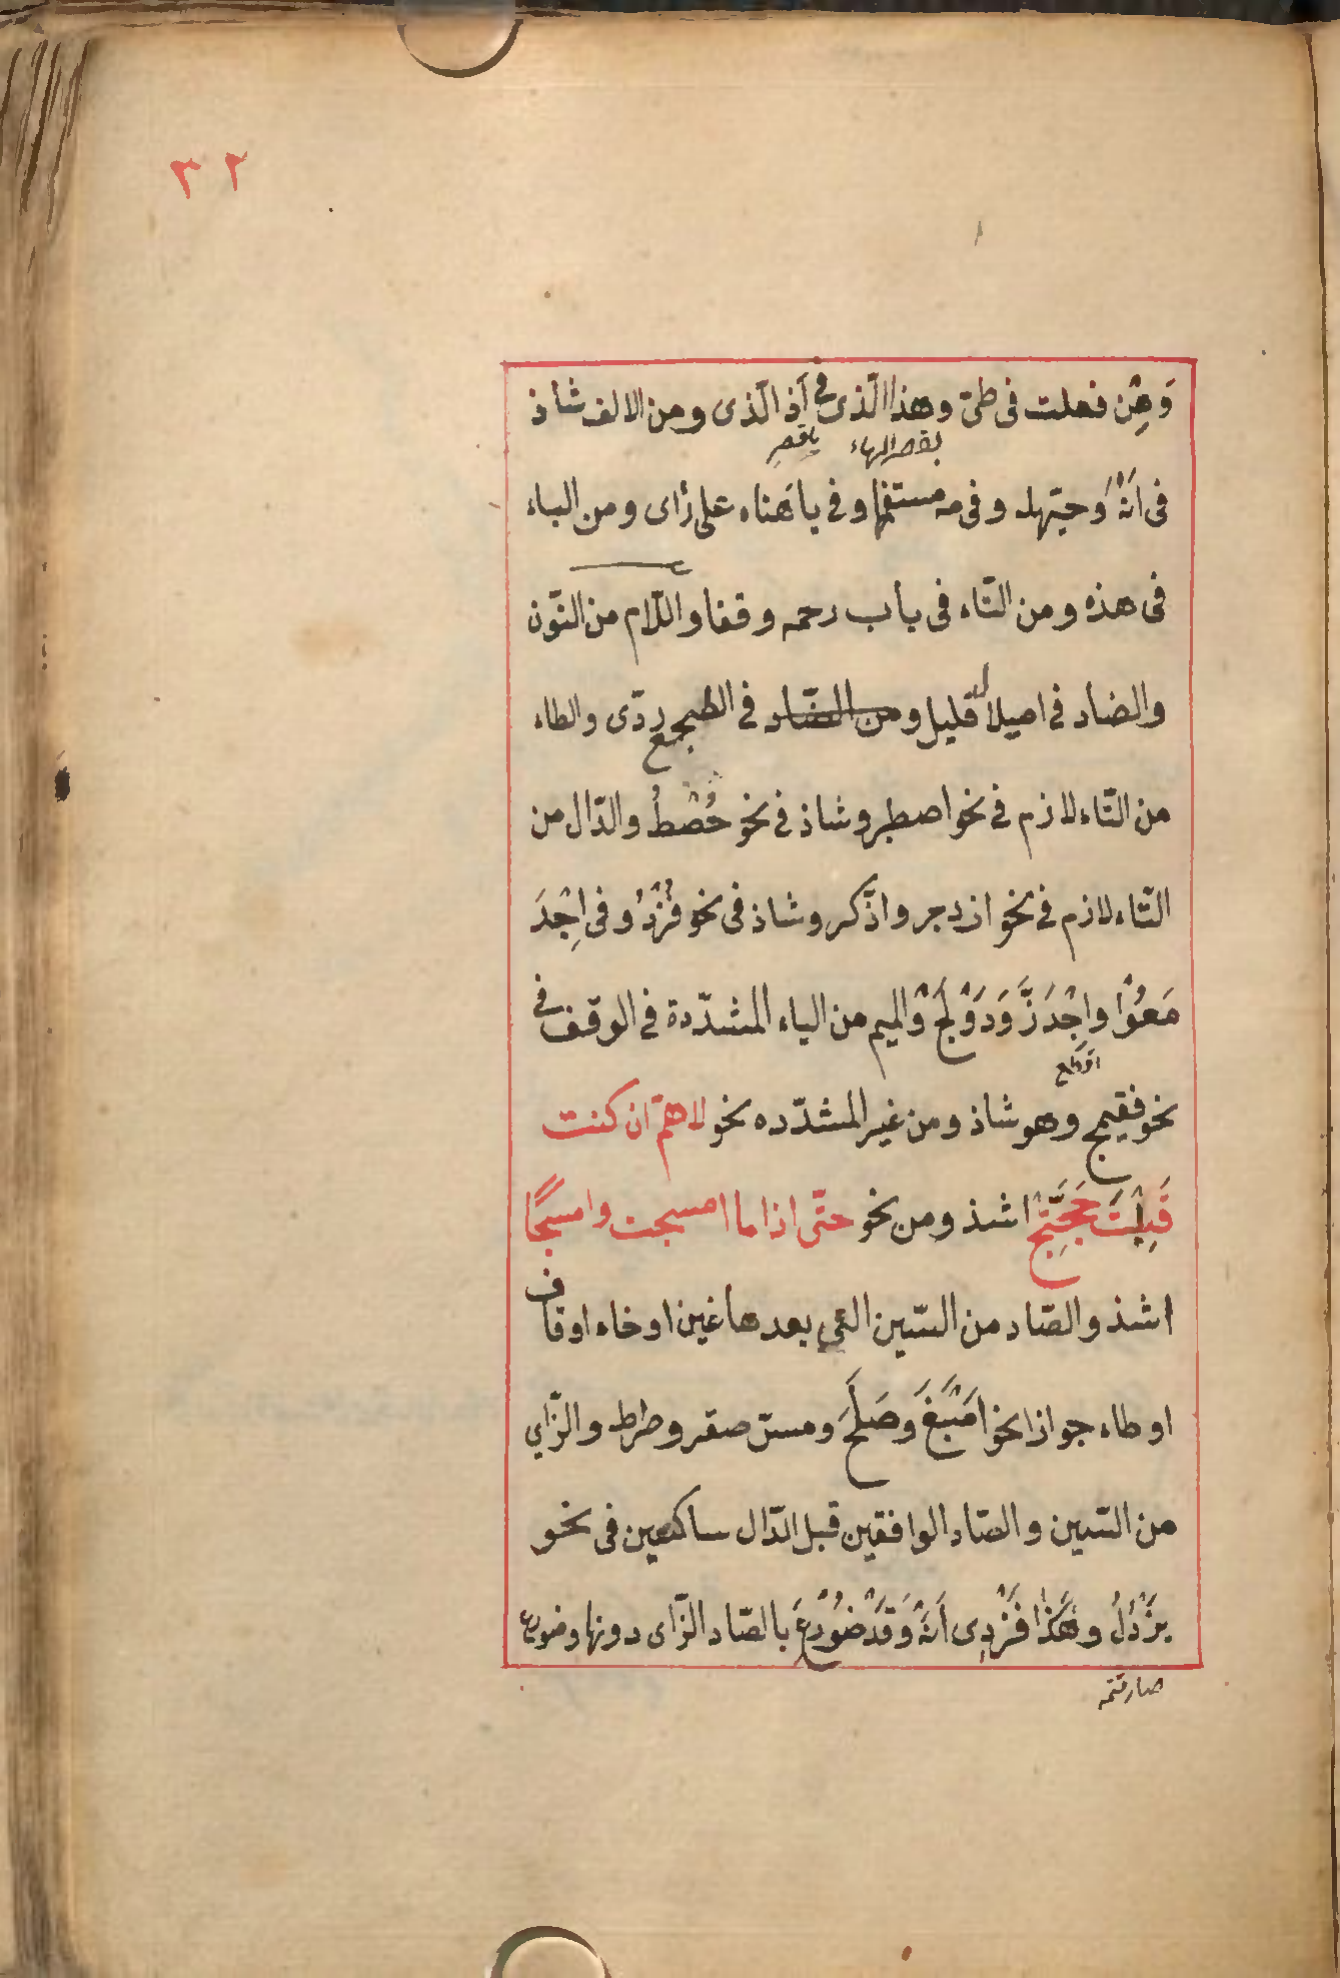 ٣٢
وَهِن فعلت فى طىّ وهذا الّذى فى اَذ الّذى ومن الالف شاذ
بقصر الهاء
فى اَنَهْ وَحيّهله وفى مه مستفهما وفى يا هَناه على رٰاى ومن الياء
فى هذه ومن التّاء فى باب رحمه وقفا واللّام من النّون
والضاد فى اصيلال قليل ومن الضّاد فى الطجع ردّى والطاء
من التّاء لازم فى نحو اصطبر وشاذ فى نحو حُصْطُ والدّال من
التّاء لازم فى نحو ازدجر واذّكر وشاذ فى نحو فُزْدُ وفى اِجْدَ
مَعُوْا واِجْدَزَّ وَدَوْلَجْ والميم من الياء المشدّدة فى الوقف فى
نحو فقيمج وهو شاذ ومن غير المشدّده نحو لاهمّ ان كنت
قَبِلْتَ حَجَّتِجْ اشذ ومن نحو حتّى اذا ما امسجت وامسجًا
اشذ والصّاد من السّين الّتى بعدها غين او خاء او قاف
او طاء جوازا نحو اَصْبَغَ وَصَلَخَ ومسّ صقر وصراط والزّاي
من السّين والصّاد الواقفين قبل الدّال ساكنين فى نحو
يَزْدُلُ وهٰكَذا فَزْدِى اَنَهْ وَقَدْ ضُوْرِعَ بالصّاد الزّاى دونها وضورع